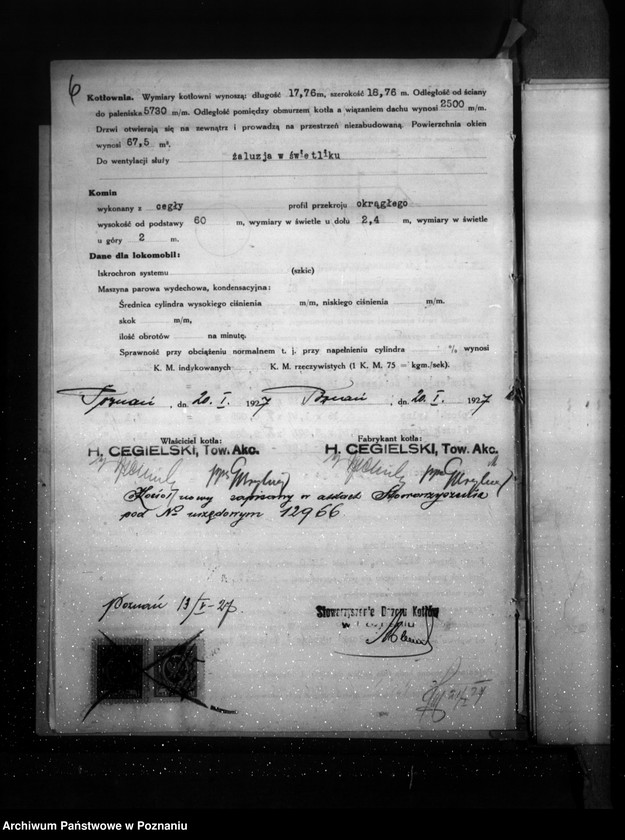 6
Kotłownia. Wymiary kotłowni wynoszą: długość 17,76m, szerokość 18,76 m. Odległość od ściany
do paleniska 5730 m/m. Odległość pomiędzy obmurzem kotła a wiązaniem dachu wynosi 2500 m/m.
Drzwi otwierają się na zewnątrz i prowadzą na przestrzeń niezabudowaną. Powierzchnia okien
wynosi 67,5 m².
Do wentylacji służy żaluzja w świetliku
Komin
wykonany z cegły profil przekroju okrągłego
wysokość od podstawy 60 m, wymiary w świetle u dołu 2,4 m, wymiary w świetle
u góry 2 m.
Dane dla lokomobil:
Iskrochron systemu (szkic)
Maszyna parowa wydechowa, kondensacyjna:
Średnica cylindra wysokiego ciśnienia m/m, niskiego ciśnienia m/m.
skok m/m,
ilość obrotów na minutę.
Sprawność przy obciążeniu normalnem t. j. przy napełnieniu cylindra % wynosi
K. M. indykowanych K. M. rzeczywistych (1 K. M. 75 = kgm./sek).
Poznań, dn. 20. I. 1927 Poznań, dn. 20. I. 1927
Właściciel kotła: Fabrykant kotła:
H. CEGIELSKI, Tow. Akc. H. CEGIELSKI, Tow. Akc.
Kocioł nowy zapisany w aktach Stowarzyszenia
pod No urzędowym 12966.
Poznań 13/V-27.
Stowarzyszenie Dozoru Kotłów
Archiwum Państwowe w Poznaniu